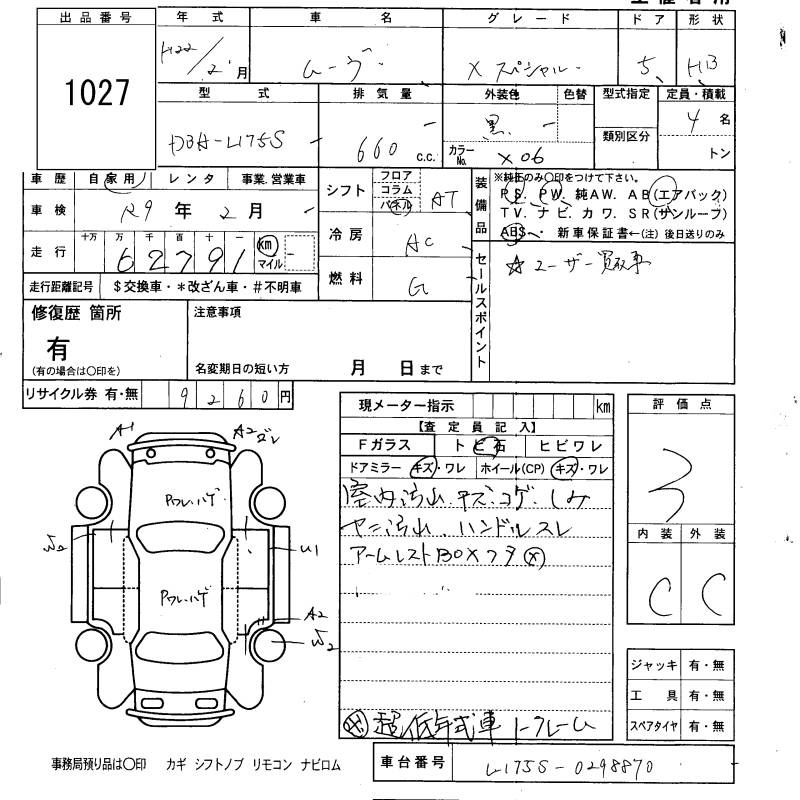 出品番号 年式 車名 グレード ドア 形状
1027 H22/2月 ムーヴ Xスペシャル 5 HB
型式 排気量 外装色 色替 型式指定 定員・積載
DBA-L175S 660 c.c. 黒 カラーNo. X06 類別区分 4名 トン
車歴 自家用 レンタ 事業.営業車
車検 R9年2月
走行 十万 万 千 百 十 一 km マイル
62791
走行距離記号 $交換車・*改ざん車・#不明車
シフト フロア コラム パネル AT
冷房 AC
燃料 G
装備品 ※純正のみ〇印をつけて下さい。
P S. P W. 純A W. A B(エアバック)
T V. ナ ビ. カ ワ. S R(サンルーフ)
ABS. ・新車保証書←(注)後日送りのみ
セールスポイント ☆ユーザー買取車
修復歴 箇所 注意事項
有
(有の場合は〇印を) 名変期日の短い方 月 日まで
リサイクル券 有・無 9260円
現メーター指示 km
【査定員記入】
Fガラス トビ石 ヒビワレ
ドアミラー キズ・ワレ ホイール(CP) キズ・ワレ
室内汚れ.キズ.コゲ.しみ
ヤニ汚れ.ハンドルスレ
アームレストBOXフタ
超低年式車 ノークレーム
評価点
3
内装 外装
C C
ジャッキ 有・無
工具 有・無
スペアタイヤ 有・無
A1 A2
ワレ.ハゲ
W2 U1
ワレ.ハゲ
A2
W2
事務局預り品は〇印 カギ シフトノブ リモコン ナビロム
車台番号 L175S-0298870